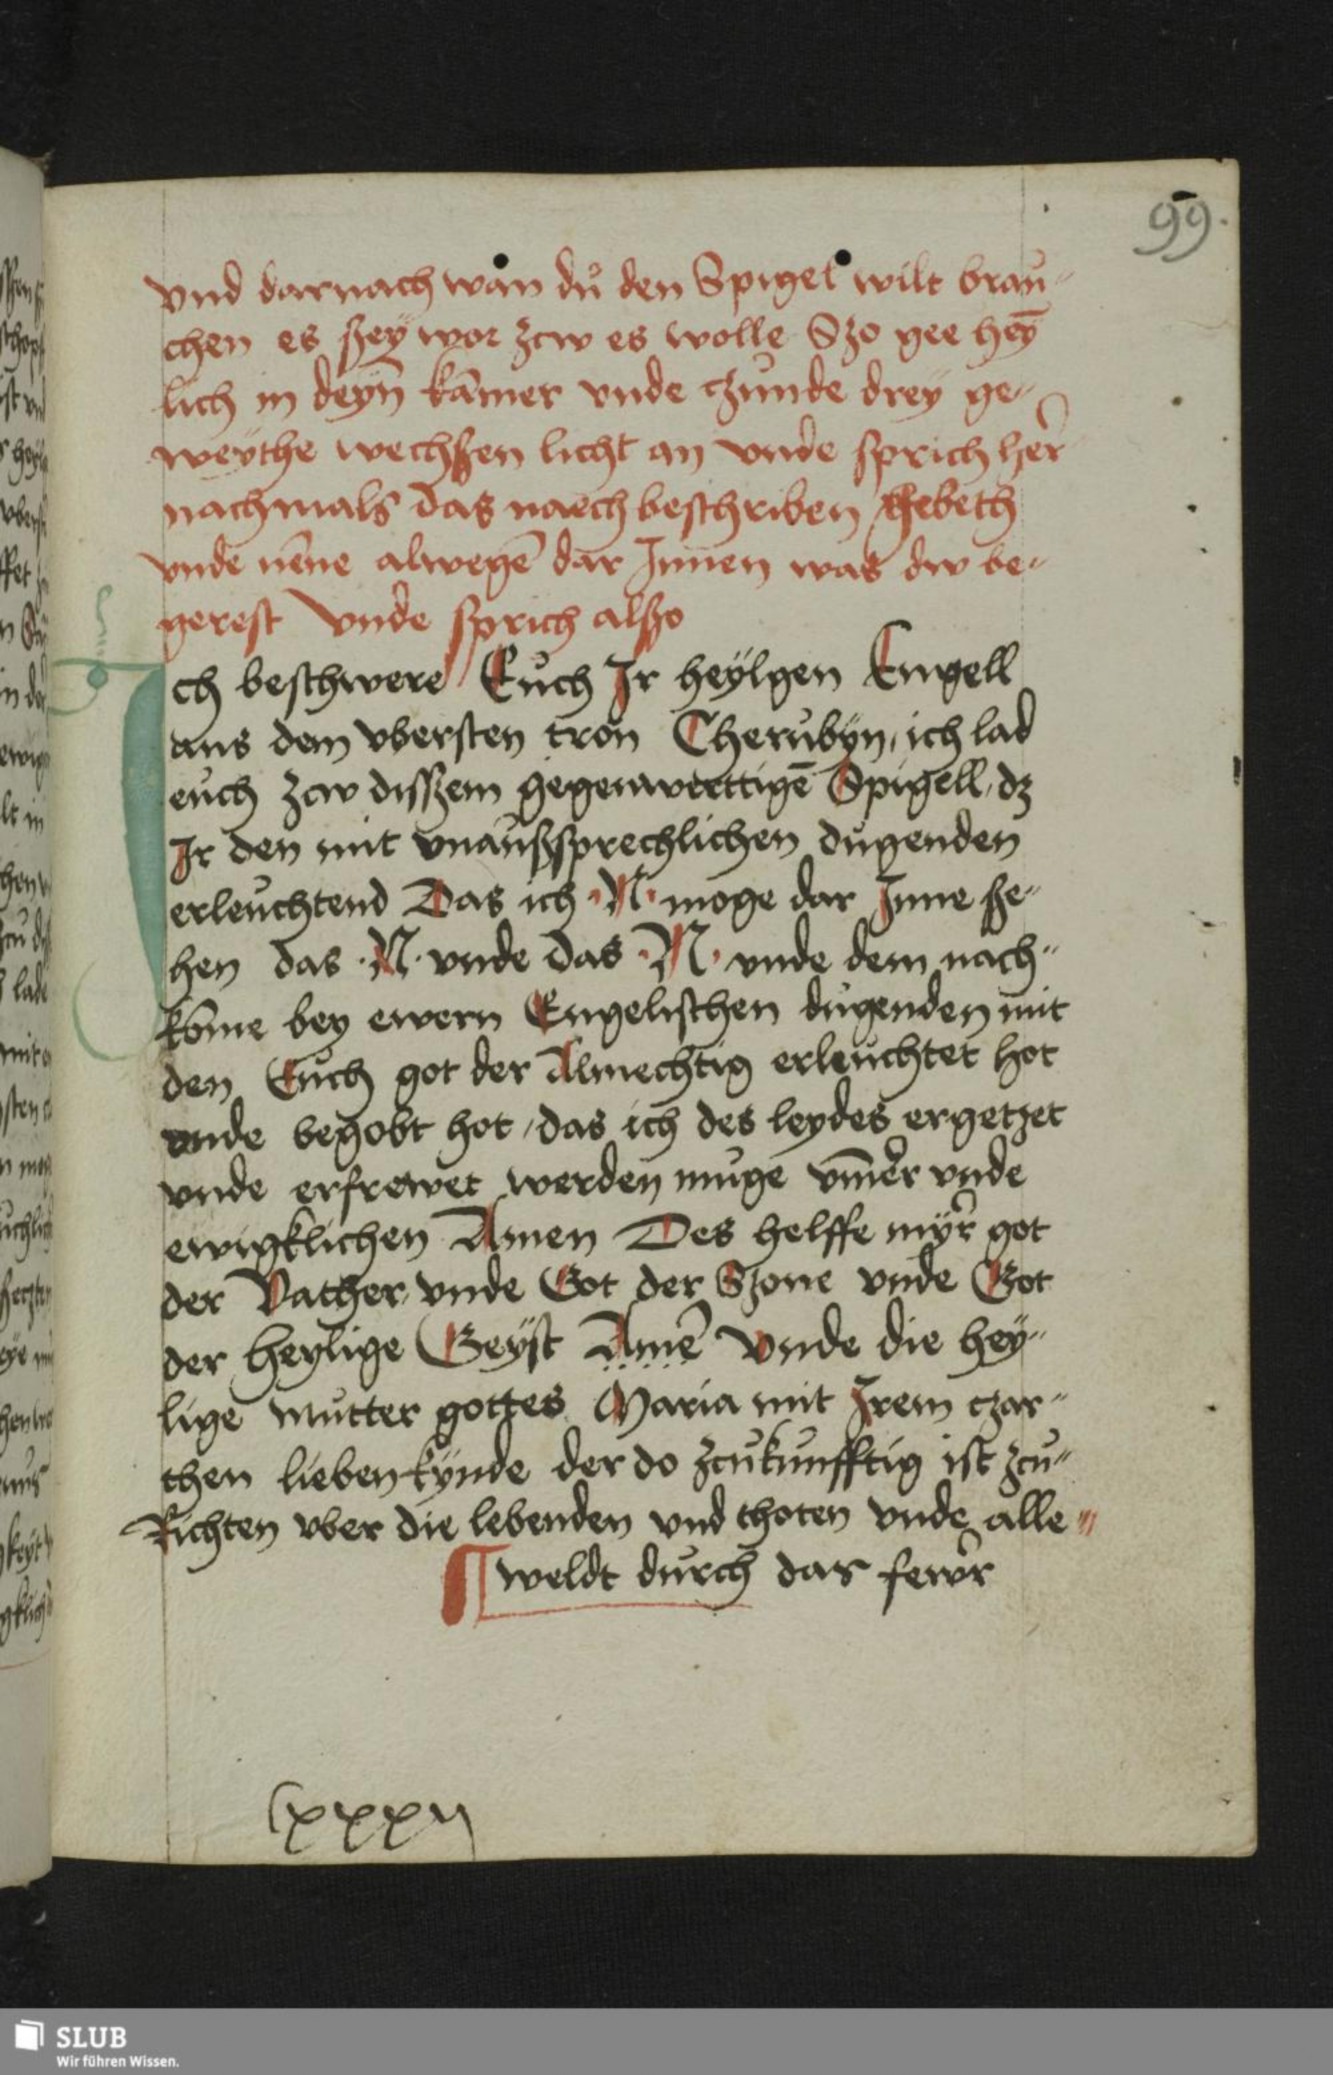 99.
vnd darnach wan du den Spigel wilt brau-
chen es sey wor zcw es wolle Szo gee hey̅
lich in deyn̅ ka̅mer vnde czunde drey ge-
weythe wechssen licht an vnde sprich her
nachmals das naech beschriben Gebeth
vnde ne̅ne alwege̅ dar Jnnen was dw be-
gerest vnde sprich alszo
Jch beschwere Euch Jr heylgen Engell
aus dem vbersten tron Cherubyn, ich lad
euch zcw disszem gegenwerttige̅ Spigell, dz
Jr den mit vnaußsprechlichen dugenden
erleuchtend Das ich ·N· moge dar Jnne se-
hen das ·N· vnde das ·N· vnde dem nach-
ko̅me bey ewern Engelischen dugenden mit
den Euch got der Almechtig erleuchtet hot
vnde begobt hot, das ich des leydes ergetzet
vnde erfrewet werden muge vm̅er vnde
ewigklichen Amen Des helffe myr got
der Vather vnde Got der Szone vnde Got
der heylige Geyst Ame̅ Vnde die hey-
lige mutter gottes Maria mit Jrem czar-
then lieben kynde der do zcukunfftig ist zcu-
Richten vber die lebenden vnd thoten vnde alle
¶ weldt durch dar fewr
lxxxij
SLUB
Wir führen Wissen.